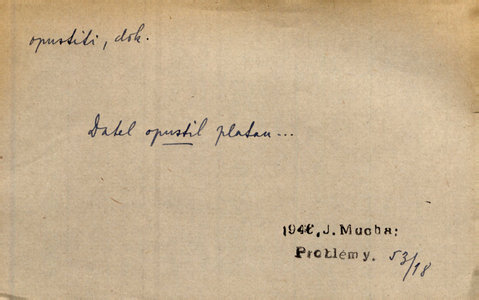 opustiti, dok.
Datel opustil platan...
1946, J. Mucha:
Problémy. 53/18